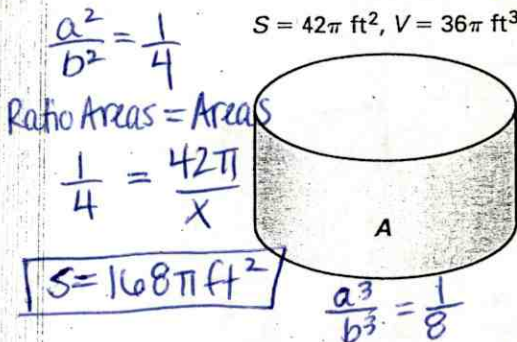 a²/b² = 1/4
S = 42π ft², V = 36π ft³
Ratio Areas = Areas
1/4 = 42π/X
A
S = 168π ft²
a³/b³ = 1/8